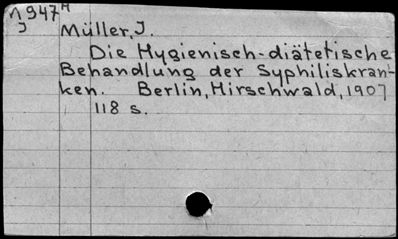 1947 H
J
Müller, J.
Die Hygienisch-diätetische
Behandlung der Syphiliskran-
ken. Berlin, Hirschwald, 1907
118 s.